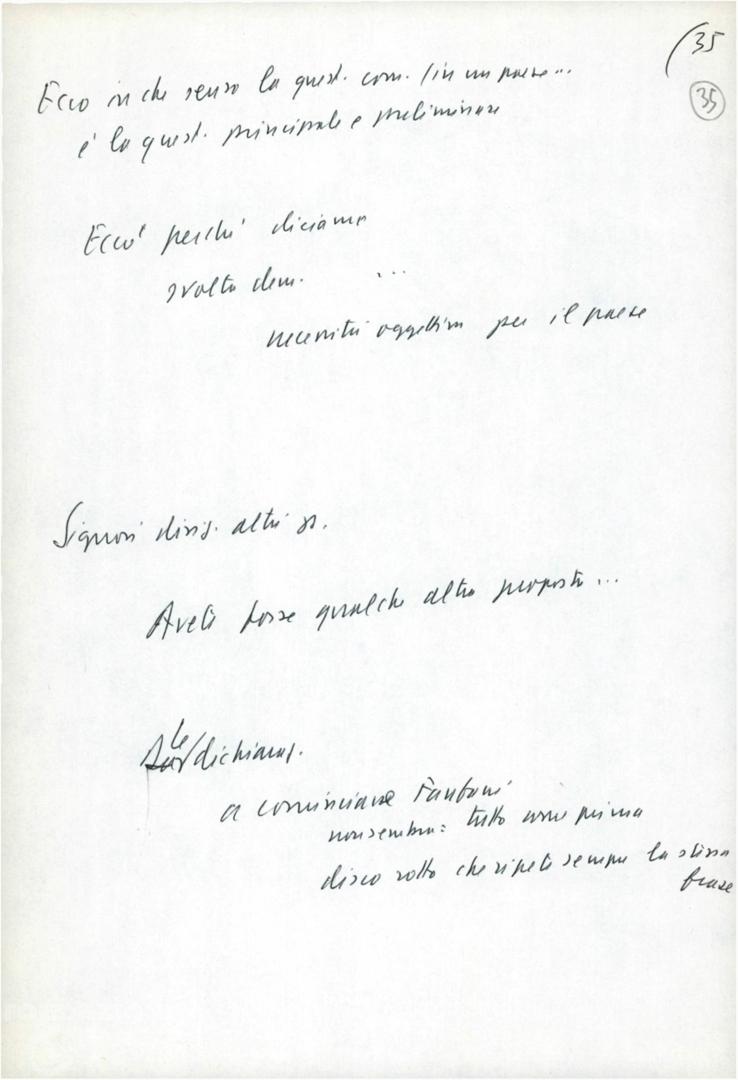 (35
35
Ecco in che senso la quest. com. (in un paese...
è la quest. principale e preliminare
Ecco perché diciamo
svolta dem. ...
necessità oggettiva per il paese
Signori dirig. altri p.
Avete forse qualche altra proposta...
le dichiaraz.
a cominciare Fanfani
non sembra: tutto come prima
disco rotto che ripete sempre la stessa
frase